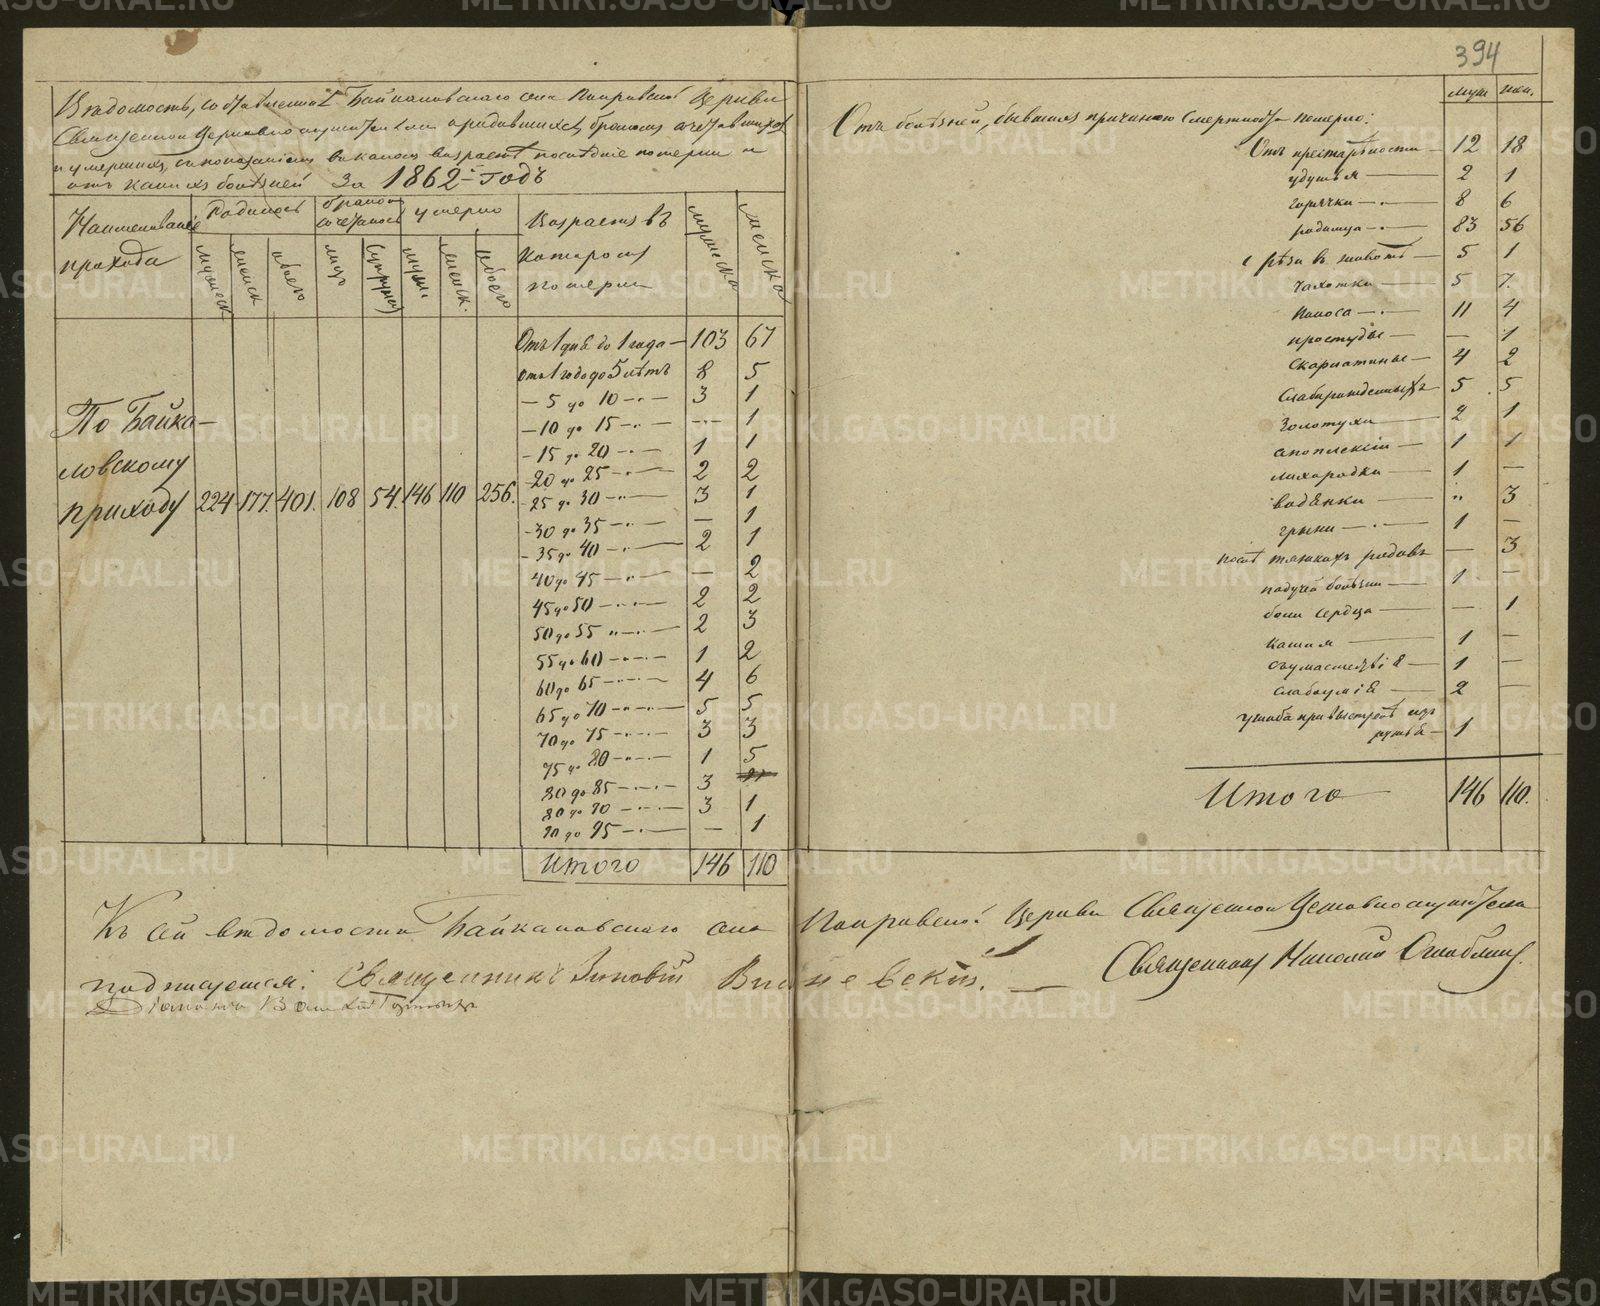 394
Вѣдомость, составленная Байкаловскаго села Покровской Церкви
Священно Церковно служителями о родившихся, бракомъ сочетавшихся
и умершихъ, съ показаніемъ въ какомъ возрастѣ послѣдніе померли и
отъ какихъ болѣзней За 1862-й годъ
Наименованіе прихода
Родилось
браком сочеталось
умерло
Возрастъ въ котором померли
мужеска
женска
мужеск
женск
обоего
лицъ
супруж
муж.
женск.
обоего
По Байка-
ловскому
приходу 224 177. 401. 108 54. 146 110 256.
Отъ 1 дня до 1 года — 103 67
отъ 1 года до 5 лѣтъ 8 5
— 5 до 10 — 3 1
— 10 до 15 — — 1
— 15 до 20 — 1 1
20 до 25 — 2 2
- 25 до 30 — 3 1
- 30 до 35 — — 1
- 35 до 40 — 2 1
40 до 45 — — 2
45 до 50 — 2 2
50 до 55 — 2 3
55 до 60 — 1 2
60 до 65 — 4 6
65 до 70 — 5 5
70 до 75 — 3 3
75 до 80 — 1 5
80 до 85 — 3
80 до 90 — 3 1
90 до 95 — — 1
Итого 146 110
муж жен.
Отъ болѣзней, бывшихъ причиною смертности померло:
Отъ престарѣлости — 12 18
удушья — 2 1
горячки — 8 6
родимца — 83 56
рѣзи въ животѣ — 5 1
чахотки — 5 7.
поноса — 11 4
простуды — — 1
Скарлатины — 4 2
Слаборожденныхъ 5 5
Золотухи — 2 1
апоплексіи — 1 1
лихорадки — 1 —
водянки — „ 3
грыжи — 1 —
послѣ тяжкихъ родовъ — 3
падучей болѣзни — 1 —
боли сердца — — 1
Кашля — 1 —
сумасшествія — 1 —
слабоумія — 2 —
ушиба при выстрѣлѣ изъ
ружья — 1
Итого 146 110.
Къ сей вѣдомости Байкаловскаго села Покровской Церкви Священно Церковнослужители
подписуемся: Священникъ Зиновій Вишневскій. — Священникъ Николай
METRIKI.GASO-URAL.RU